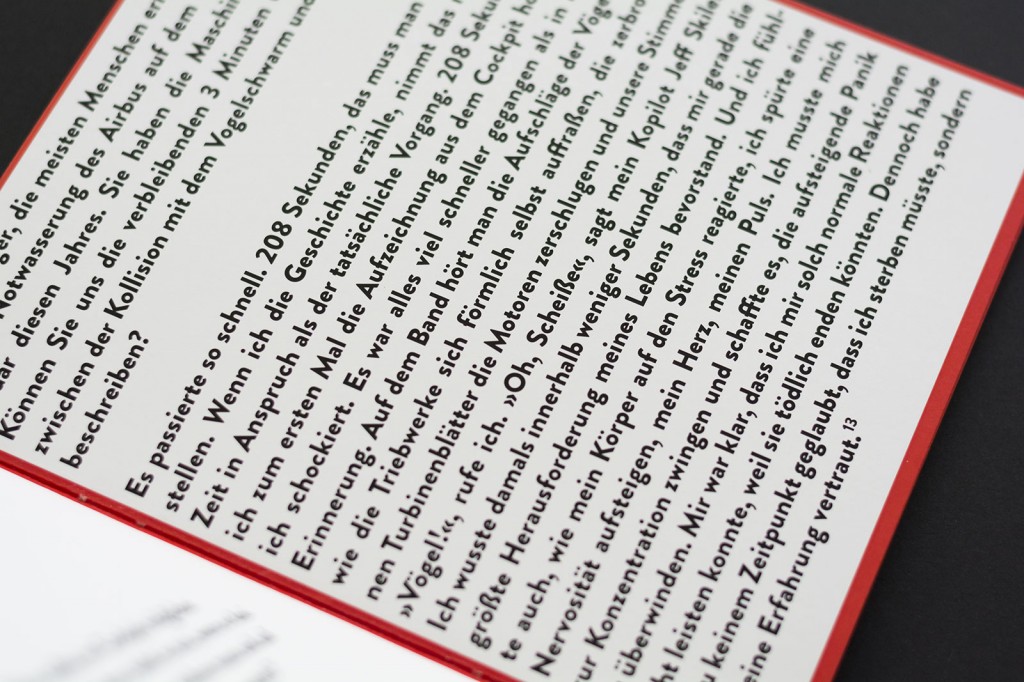 die meisten Menschen
Notwasserung des Airbus auf dem
diesen Jahres. Sie haben die
Können Sie uns die verbleibenden 3 Minuten
zwischen der Kollision mit dem Vogelschwarm und
beschreiben?
Es passierte so schnell. 208 Sekunden, das muss man
stellen. Wenn ich die Geschichte erzähle, nimmt das
Zeit in Anspruch als der tatsächliche Vorgang. 208
ich zum ersten Mal die Aufzeichnung aus dem Cockpit
ich schockiert. Es war alles viel schneller gegangen als in
Erinnerung. Auf dem Band hört man die Aufschläge der
wie die Triebwerke sich förmlich selbst auffraßen, die
nen Turbinenblätter die Motoren zerschlugen und unsere
»Vögel!«, rufe ich. »Oh, Scheiße«, sagt mein Kopilot Jeff
Ich wusste damals innerhalb weniger Sekunden, dass mir gerade die
größte Herausforderung meines Lebens bevorstand. Und ich fühl-
te auch, wie mein Körper auf den Stress reagierte, ich spürte eine
Nervosität aufsteigen, mein Herz, meinen Puls. Ich musste mich
zur Konzentration zwingen und schaffte es, die aufsteigende Panik
überwinden. Mir war klar, dass ich mir solch normale Reaktionen
leisten konnte, weil sie tödlich enden könnten. Dennoch habe
keinem Zeitpunkt geglaubt, dass ich sterben müsste, sondern
eine Erfahrung vertraut. 13